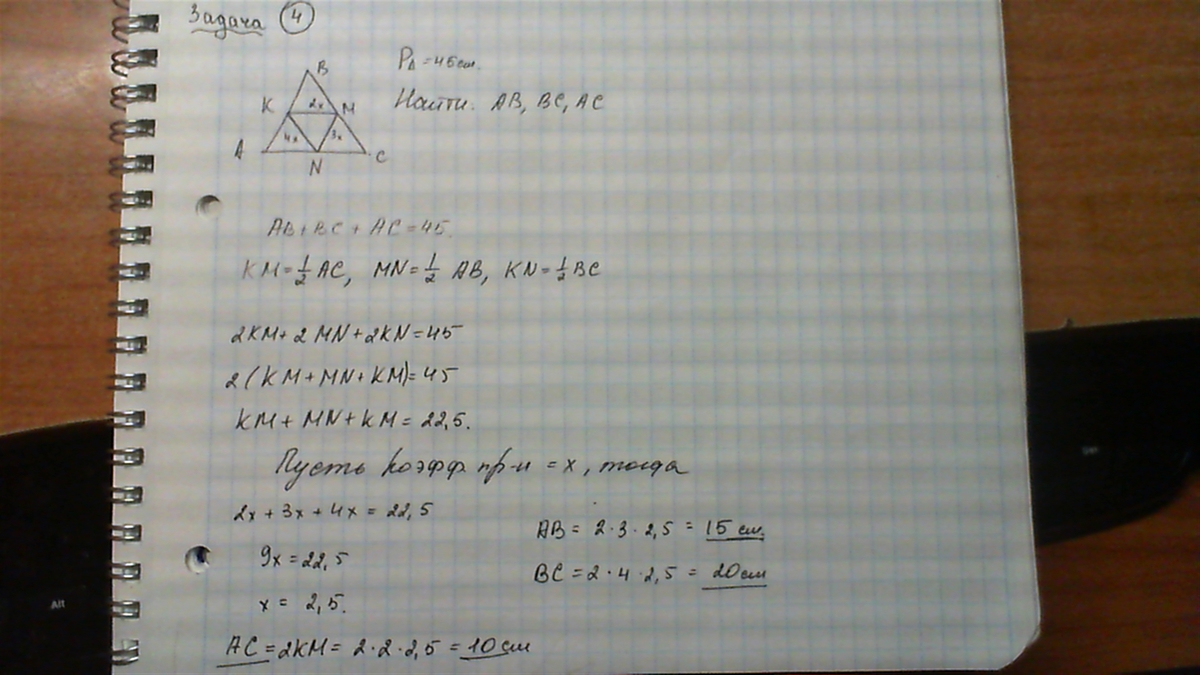 Задача 4
P△ = 45 см.
Найти: AB, BC, AC
B
K 2x M
4x 3x
A N C
AB + BC + AC = 45.
KM = 1/2 AC, MN = 1/2 AB, KN = 1/2 BC
2KM + 2MN + 2KN = 45
2(KM + MN + KM) = 45
KM + MN + KM = 22,5.
Пусть коэфф. пр-и = x, тогда
2x + 3x + 4x = 22,5
9x = 22,5
x = 2,5.
AC = 2KM = 2·2·2,5 = 10 см
AB = 2·3·2,5 = 15 см.
BC = 2·4·2,5 = 20 см
Alt